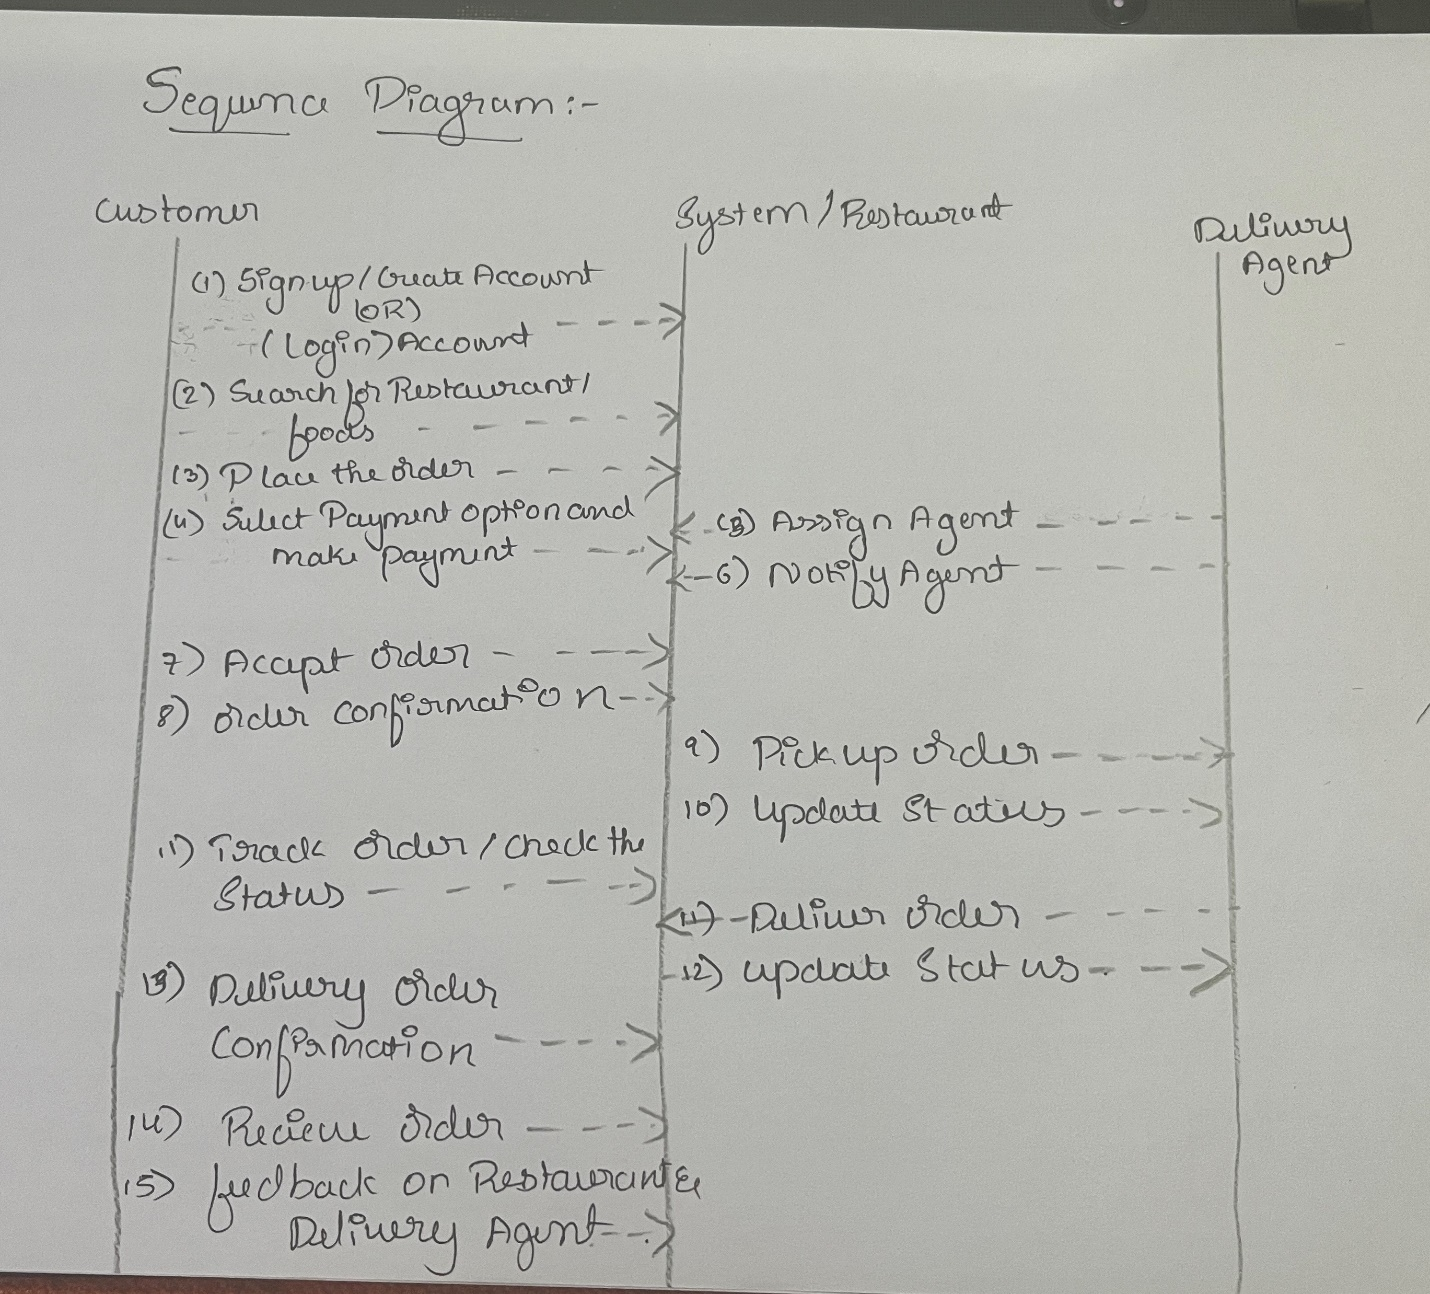 Sequence Diagram:-
Customer
System/Restaurant
Delivery
Agent
(1) Signup/Create Account
(OR)
(Login) Account
(2) Search for Restaurant/
foods
(3) Place the order
(4) Select Payment option and
make payment
(5) Assign Agent
6) Notify Agent
7) Accept order
8) order confirmation
9) Pickup order
10) Update Status
11) Track order/check the
Status
11) Deliver order
12) update Status
13) Delivery order
Confirmation
14) Recieve order
15) feedback on Restaurant &
Delivery Agent